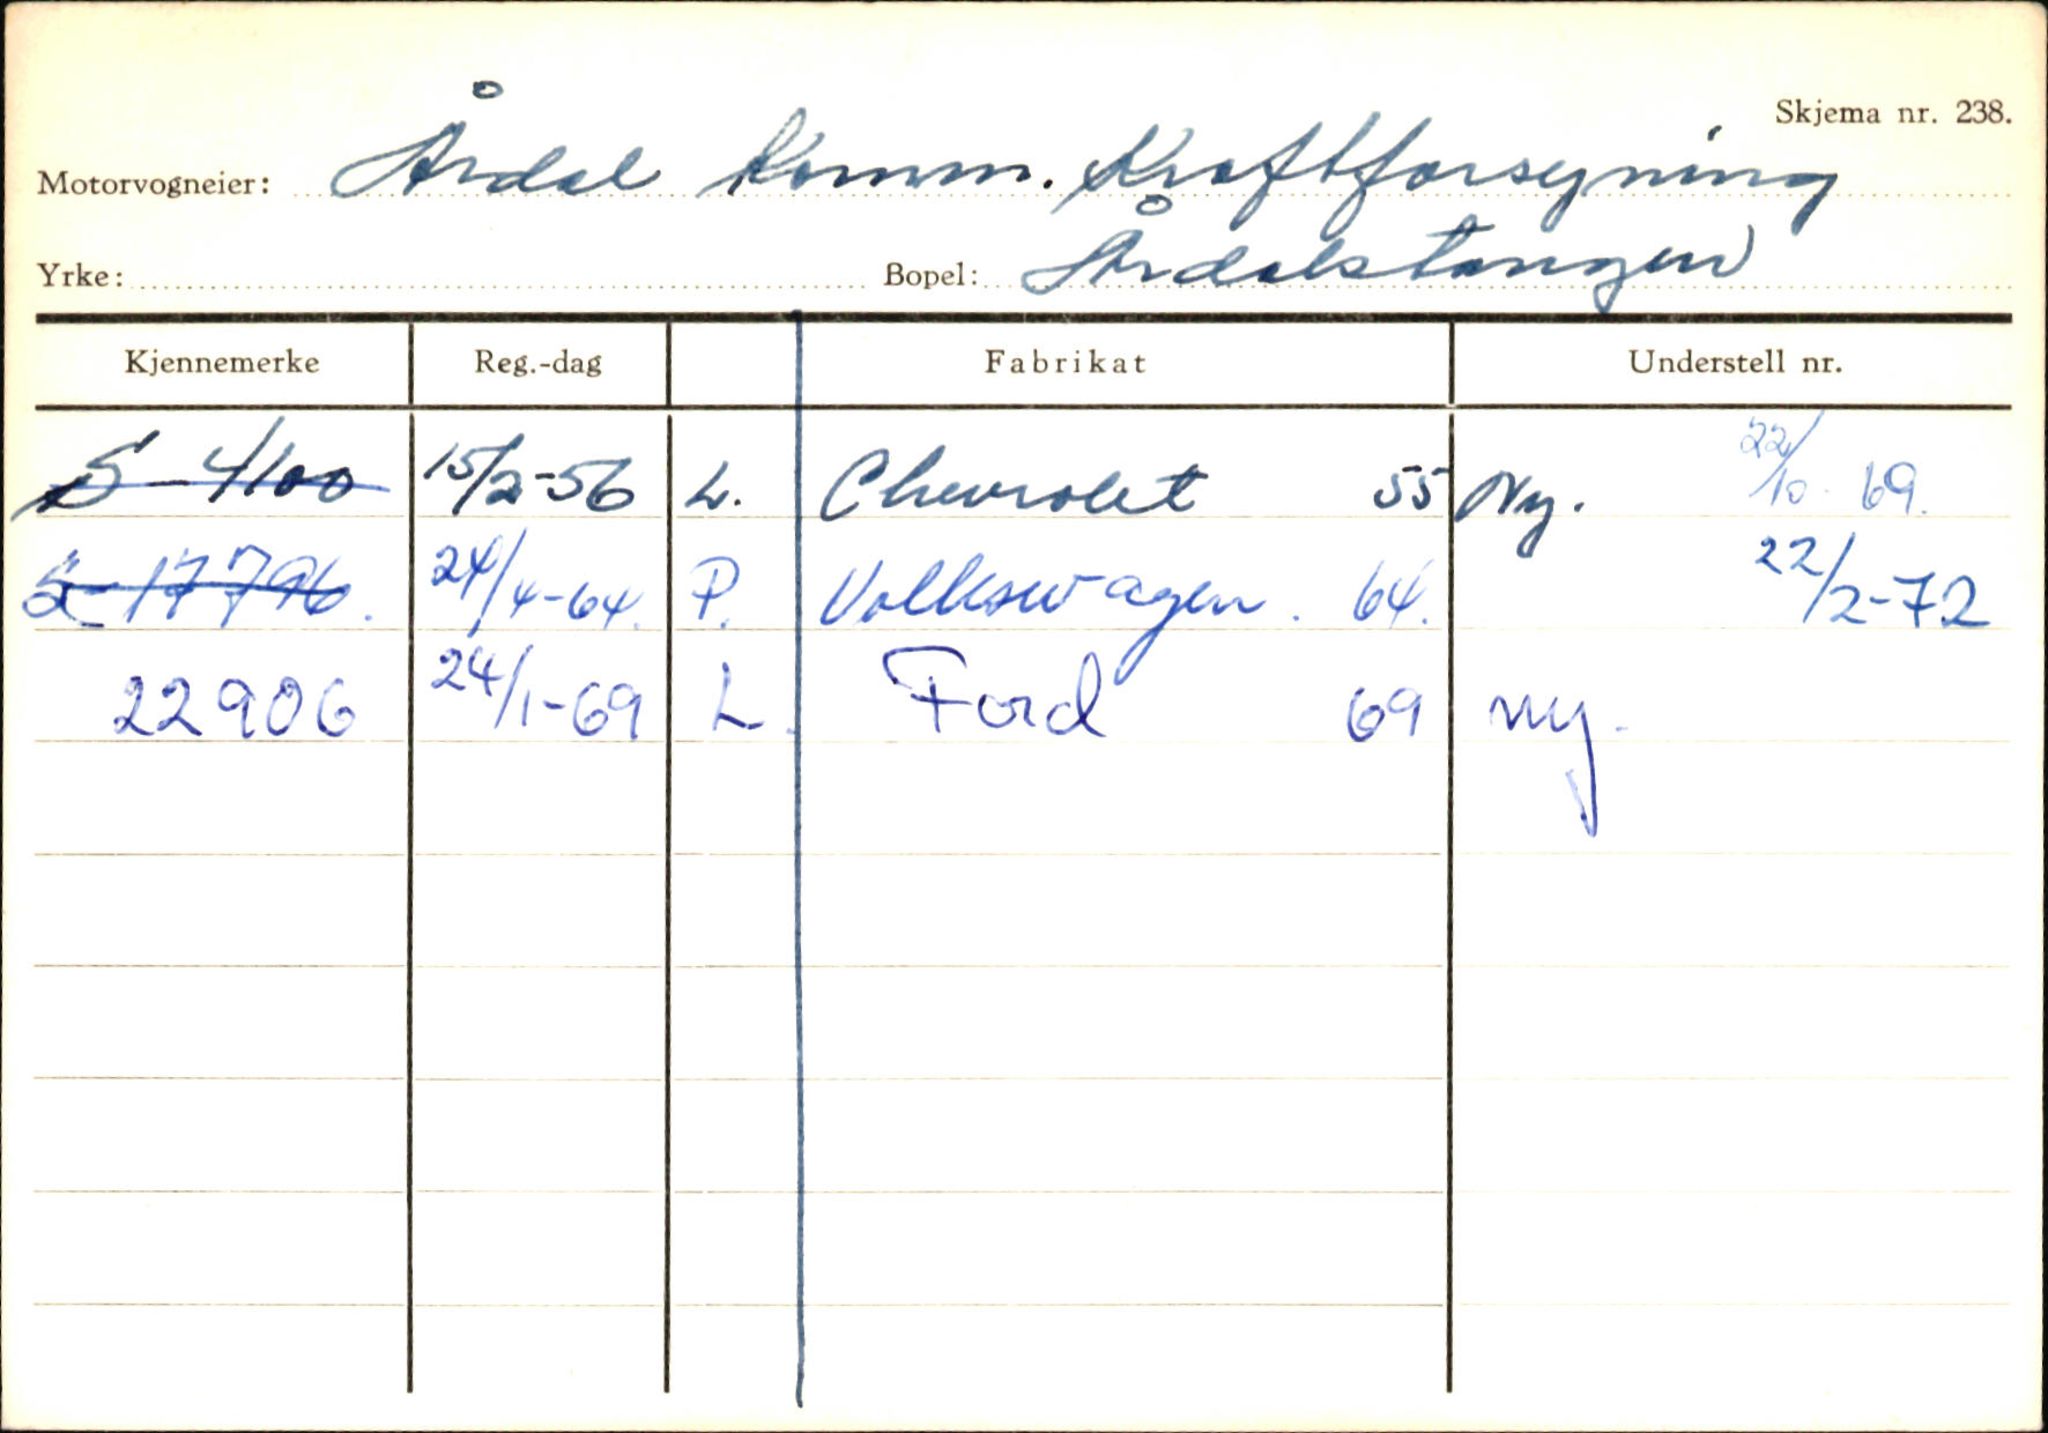 Skjema nr. 238.
Motorvogneier: Årdal Komm. Kraftforsyning
Yrke: Bopel: Årdalstangen
Kjennemerke Reg.-dag Fabrikat Understell nr.
S-4100 15/2-56 L. Chevrolet 55 Ny. 22/10. 69.
S-17796. 24/4-64. P. Volkswagen. 64. 22/2-72
22906 24/1-69 L. Ford 69 ny.